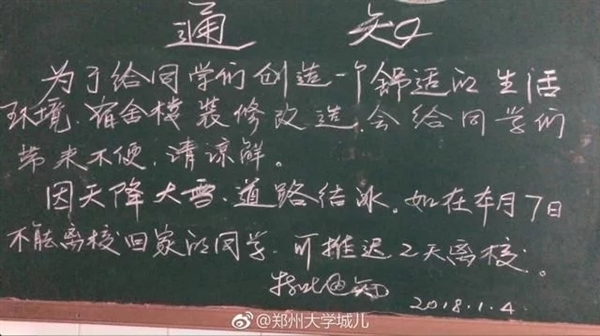 通 知
为了给同学们创造一个舒适的生活
环境,宿舍楼装修改造,会给同学们
带来不便,请谅解。
因天降大雪、道路结冰。如在本月7日
不能离校回家的同学,可推迟2天离校。
特此通知
2018.1.4.
@郑州大学城儿